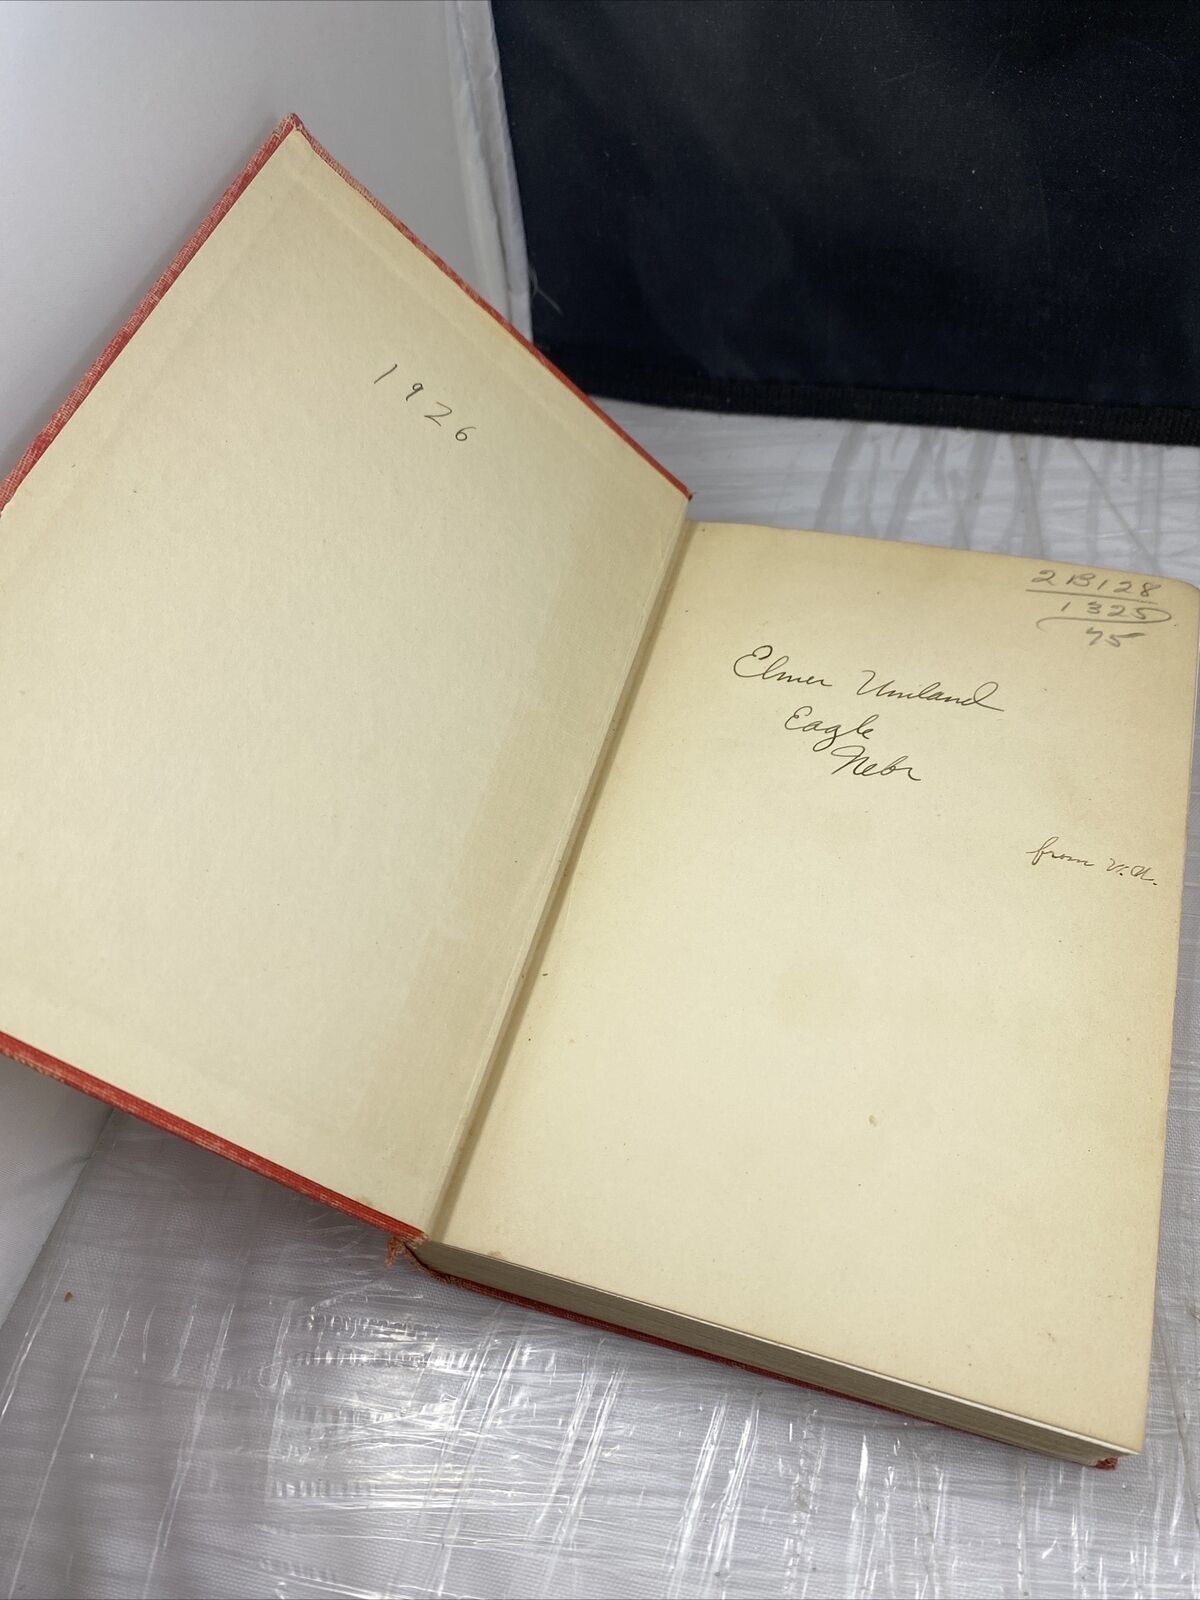 1926
2B128
1325
75
Elmer Umland
Eagle
Nebr
from V.A.